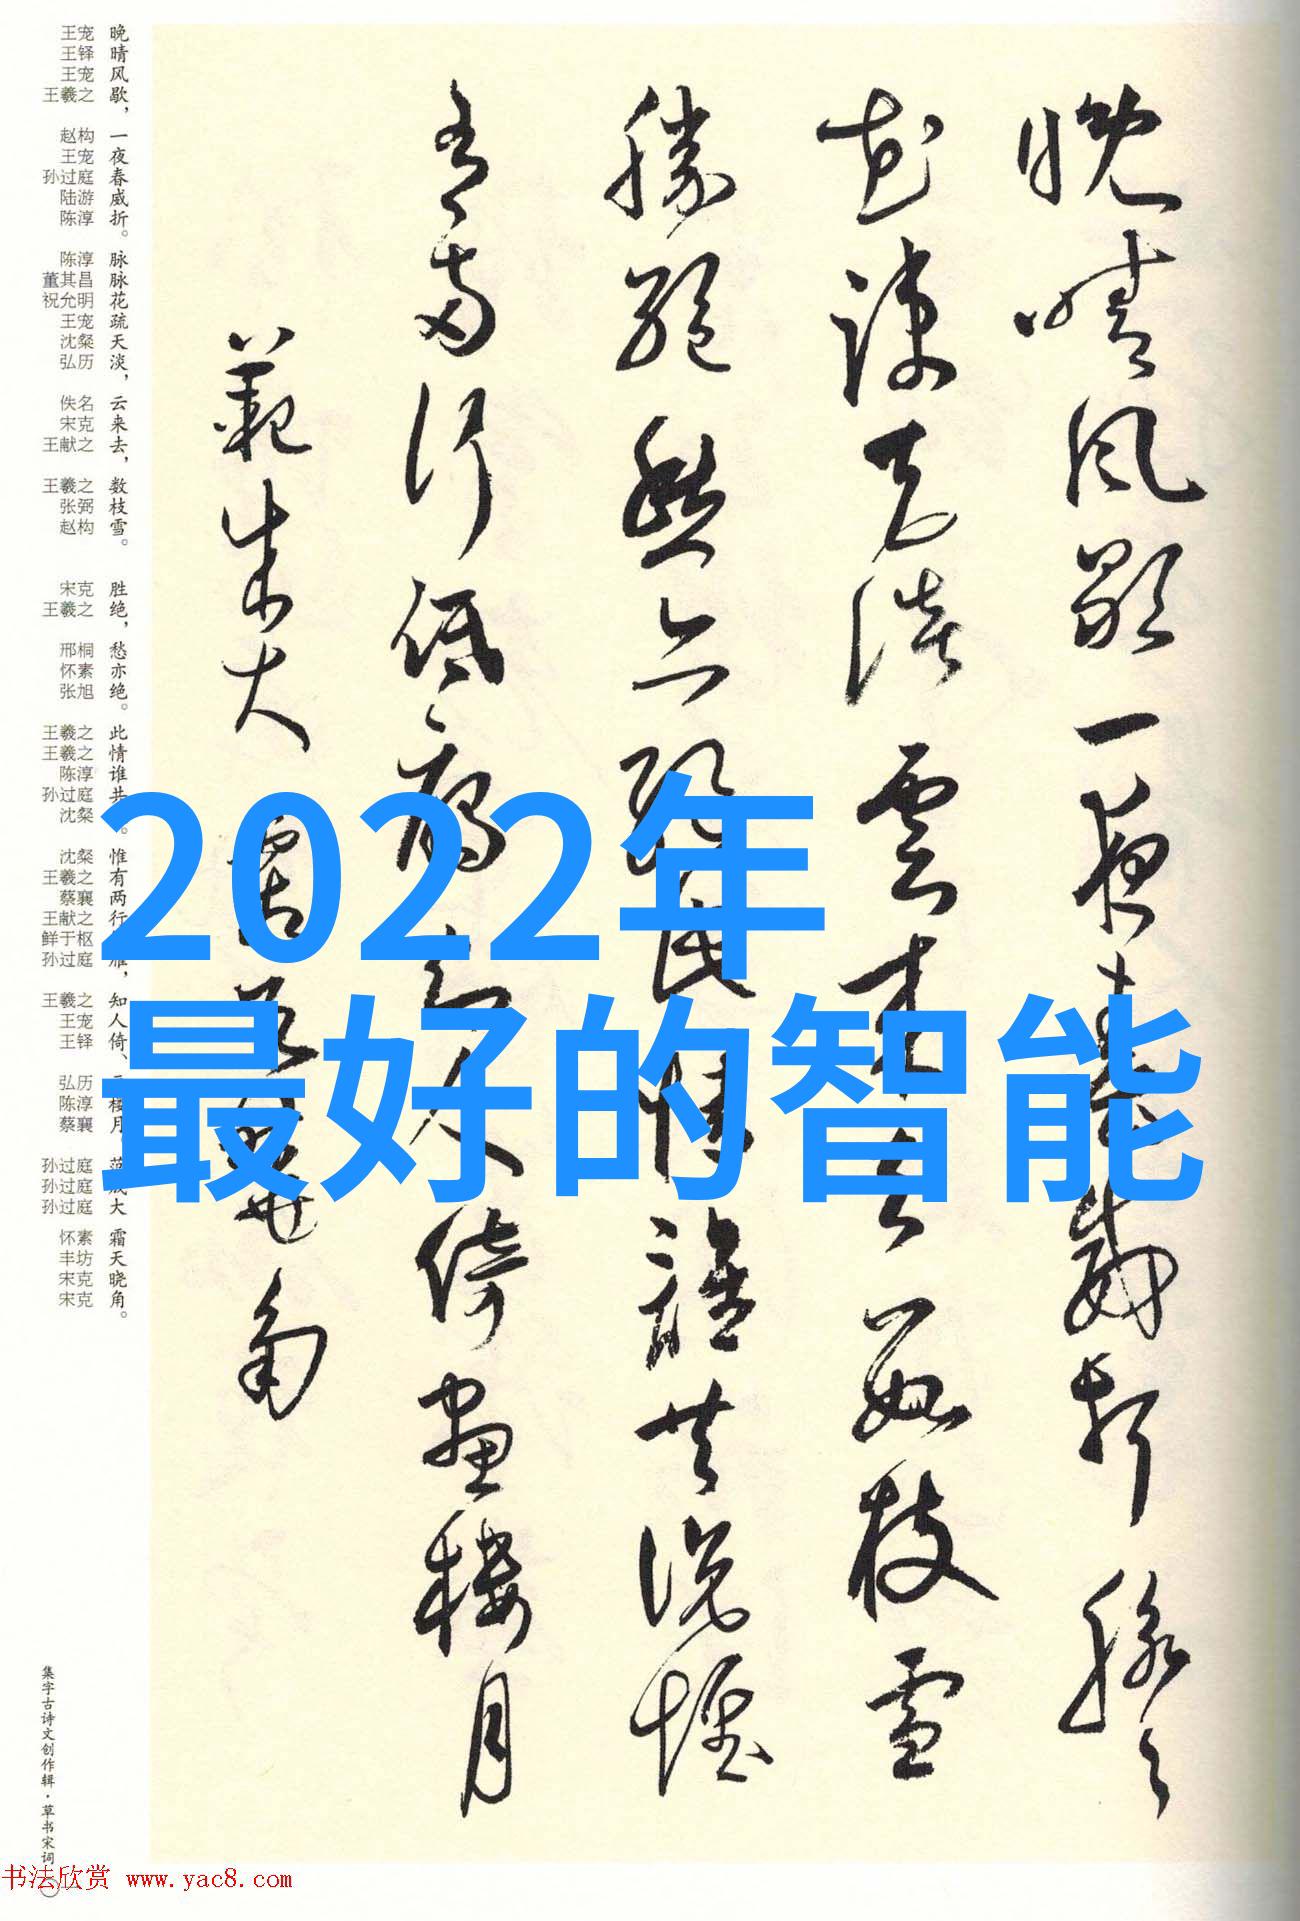 晚晴风歇一夜春威折脉々
花疏天淡云来去数枝雪
胜绝愁亦绝此情谁共说惟
有两行低雁知人倚画楼月
范成大霜天晓角
2022年
最好的智能
晚 王宠
晴 王铎
风 王宠
歇， 王羲之
一 赵构
夜 王宠
春 孙过庭
威 陆游
折。 陈淳
脉 陈淳
脉 董其昌
花 祝允明
疏 王宠
天 沈粲
淡， 弘历
云 佚名
来 宋克
去， 王献之
数 王羲之
枝 张弼
雪。 赵构
胜 宋克
绝， 王羲之
愁 邢桐
亦 怀素
绝。 张旭
此 王羲之
情 王羲之
谁 陈淳
共 孙过庭
沈粲
惟 沈粲
有 王羲之
两 蔡襄
行 王献之
鲜于枢
雁， 孙过庭
知 王羲之
人 王宠
倚、 王铎
弘历
楼 陈淳
月 蔡襄
范 孙过庭
成 孙过庭
大 孙过庭
霜 怀素
天 丰坊
晓 宋克
角。 宋克
集字古诗文创作辑·草书宋词
书法欣赏 www.yac8.com